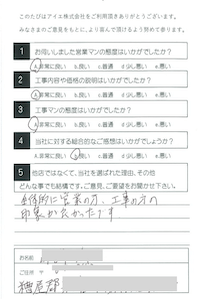 このたびはアイキ株式会社をご利用頂きありがとうございます。
みなさまのご意見をもとに、より喜んで頂けるよう努めて参ります。
1 お伺いしました営業マンの態度はいかがでしたか？
A.非常に良い b.良い c.普通 d.少し悪い e.悪い
2 工事内容や価格の説明はいかがでしたか？
A.非常に良い b.良い c.普通 d.少し悪い e.悪い
3 工事マンの態度はいかがでしたか？
A.非常に良い b.良い c.普通 d.少し悪い e.悪い
4 当社に対する総合的なご感想はいかがでしょうか？
A.非常に良い b.良い c.普通 d.少し悪い e.悪い
5 他店ではなくて、当社を選ばれた理由、その他
どんな事でも結構です。ご意見、ご要望をお聞かせ下さい。
全体的に営業の方、工事の方の
印象が良かったです
お名前
ご住所
糟屋郡